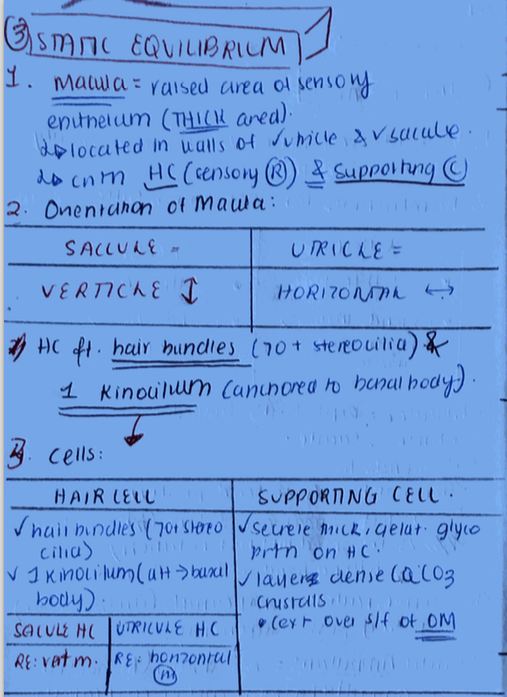 ③ STATIC EQUILIBRIUM
1. Macula = raised area of sensory
epithelium (THICK area).
↳ located in walls of ✓utricle & ✓saccule.
↳ cntn HC (sensory Ⓡ) & supporting Ⓒ
2. Orientation of Macula:
SACCULE = UTRICLE =
VERTICLE ↕ HORIZONTAL ↔
HC ft. hair bundles (70+ stereocilia) &
1 Kinocilium (anchored to basal body).
3. Cells:
HAIR CELL SUPPORTING CELL.
✓ hair bundles (70+ stereo ✓ secrete thick, gelat. glyco
cilia) prtn on HC.
✓ 1 Kinocilium (att → basal ✓ layers dense CaCO3
body). crystals
SACULE HC UTRICULE HC • (ext over s/f of OM
RE: vert m. RE: horizontal
ⓜ